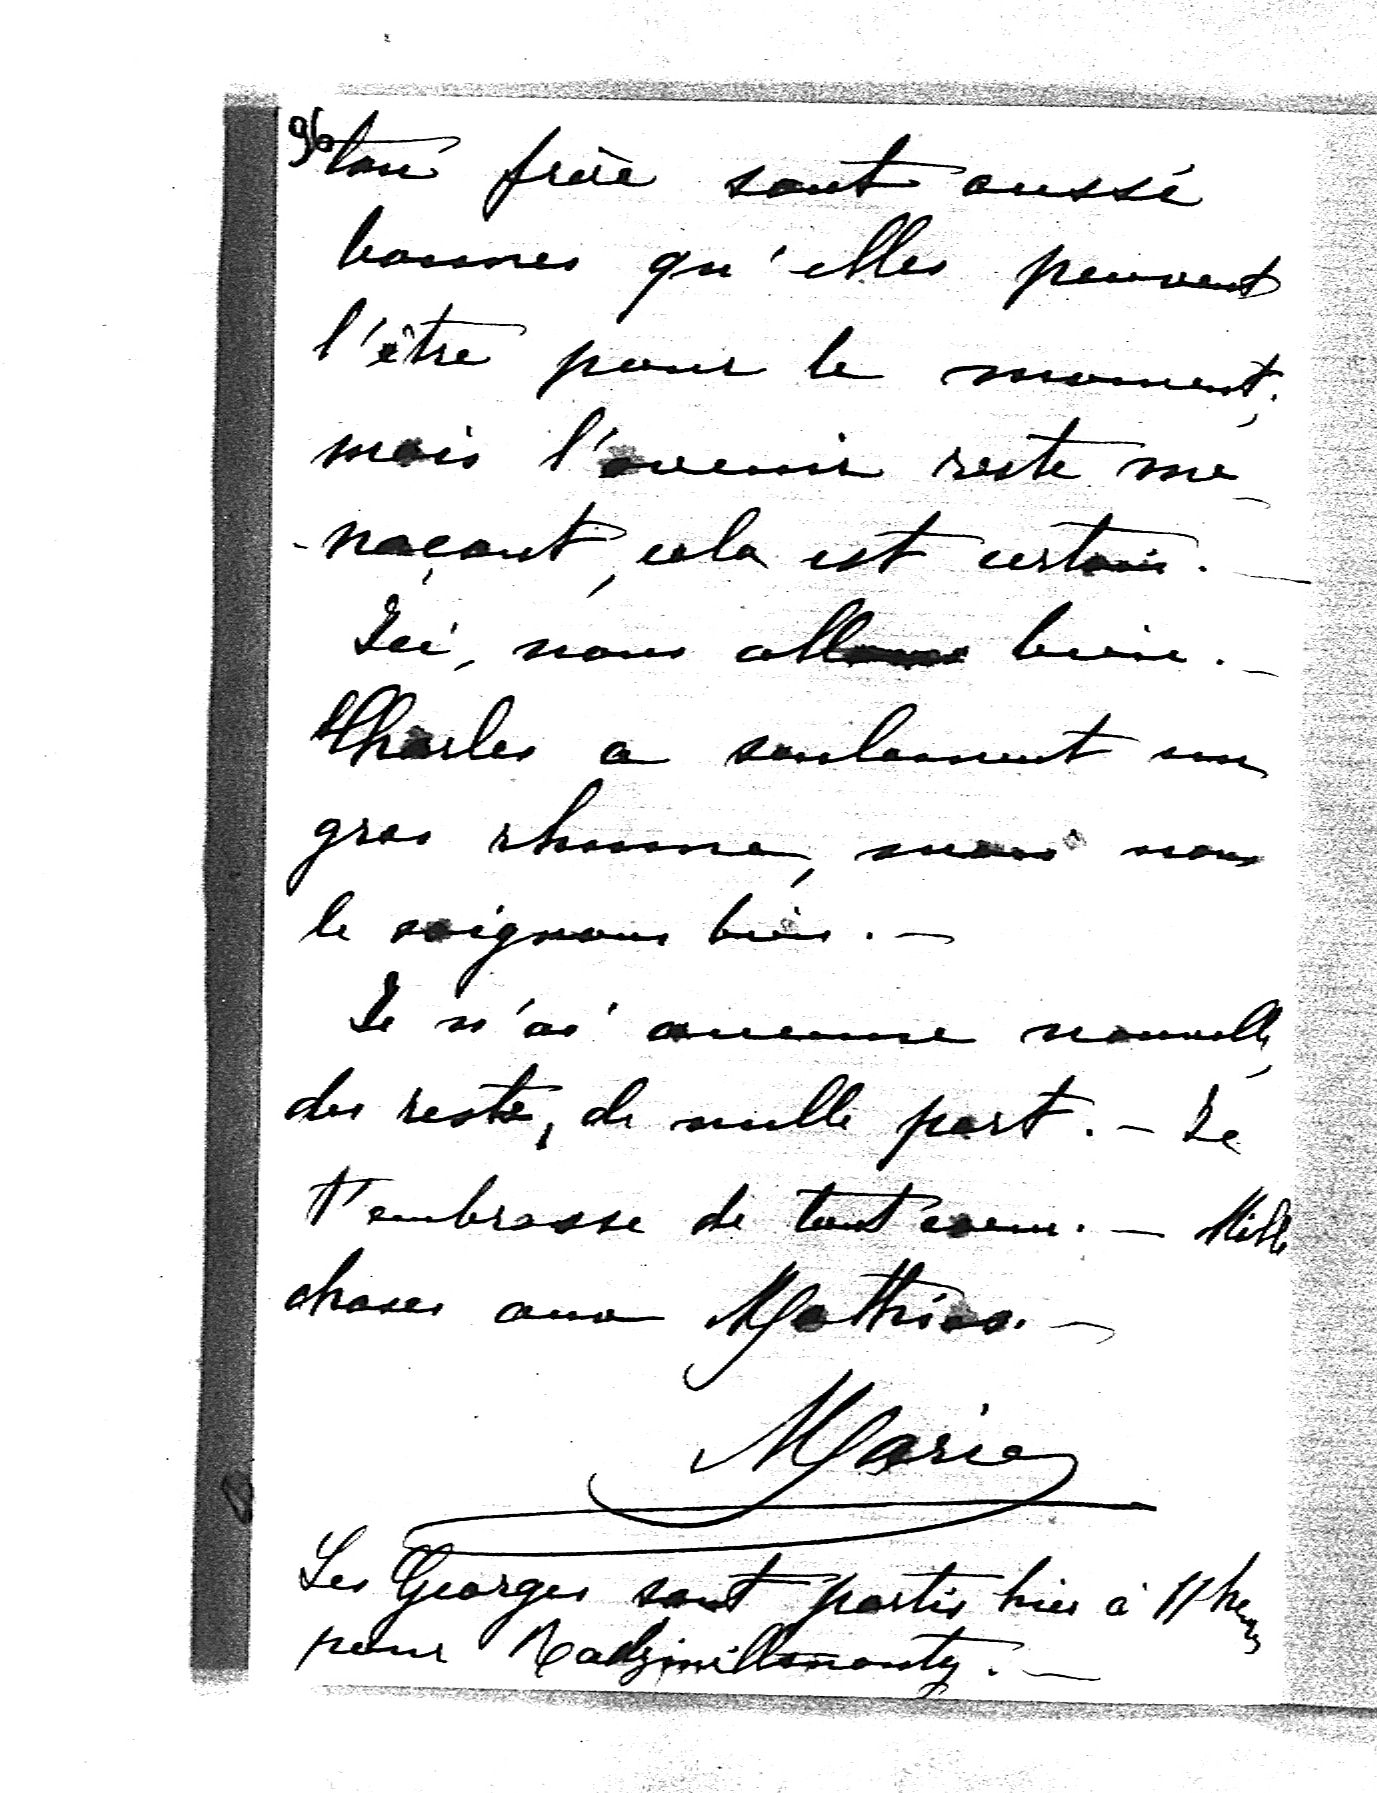 96
ton frère sont aussi
bonnes qu'elles peuvent
l'être pour le moment;
mais l'avenir reste me-
-naçant, cela est certain. —
Ici, nous allons bien. —
Charles a seulement un
gros rhume, mais nous
le soignons bien. —
Je n'ai aucune nouvelle,
du reste, de nulle part. — Je
t'embrasse de tout cœur. — Mille
choses aux Mathias. —
Marie
Les Georges sont partis hier à 11 heures
pour Radziwillmonty. —